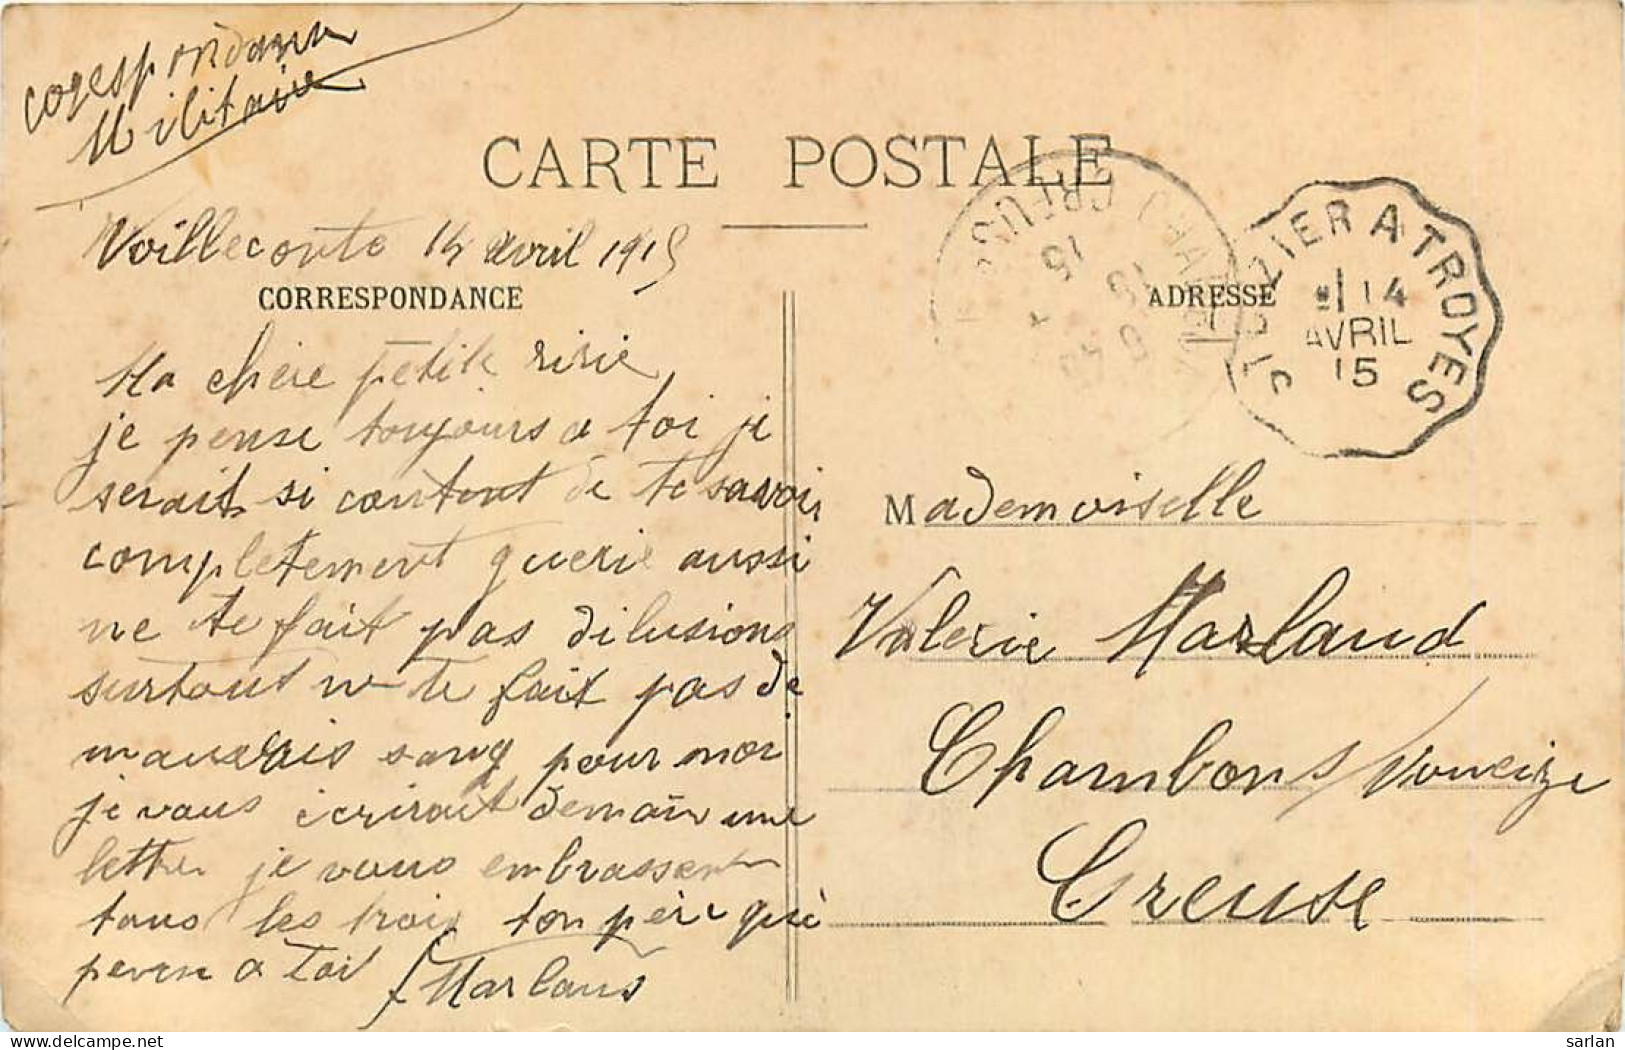 Corespondance
Militaire
CARTE POSTALE
Voilleconte 14 avril 1915
CORRESPONDANCE
ADRESSE
Ma chère petite ririe
je pense toujours a toi je
serait si content de te savoir
completement guerie aussi
ne te fait pas dilusions
surtout ne te fait pas de
mauvais sang pour moi
je vous écrirait demain une
lettre je vous embrassent
tous les trois ton père qui
pense a toi Marlaud
Mademoiselle
Valerie Marland
Chambon s/ Voueize
Creuse
ST DIZIER A TROYES
14
AVRIL
15
CREUSE
15
sarlan